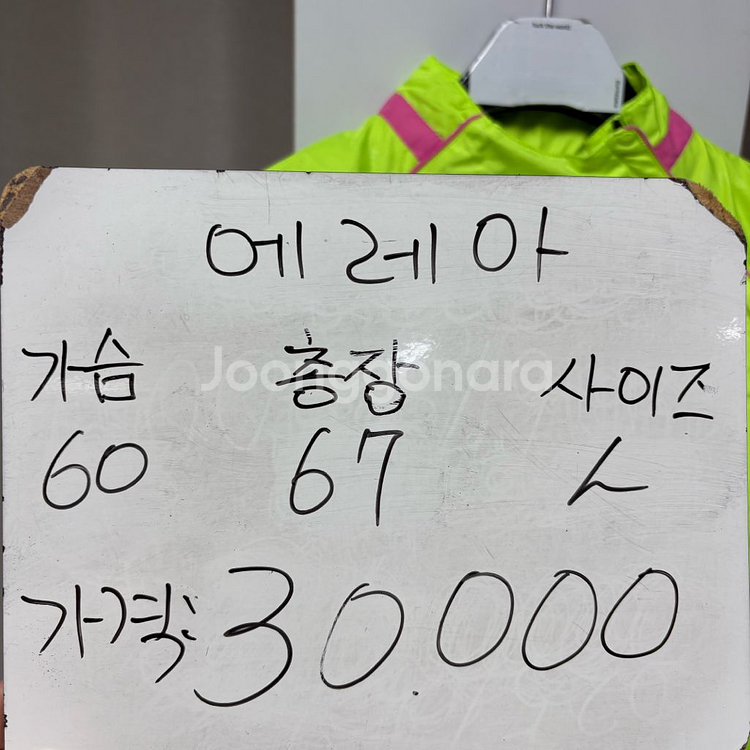 에레아
가슴 총장 사이즈
60 67 L
가격: 30.000
Joonggonara